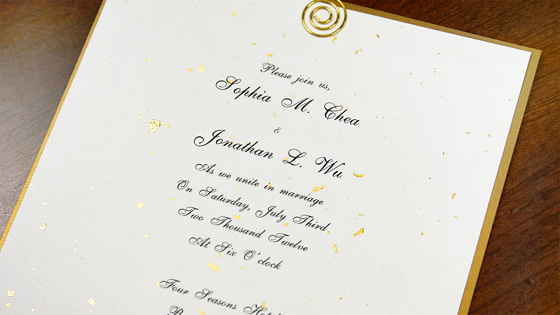 Please join us,
Sophia M. Chea
&
Jonathan L. Wu
As we unite in marriage
On Saturday, July Third
Two Thousand Twelve
At Six O'clock
Four Seasons